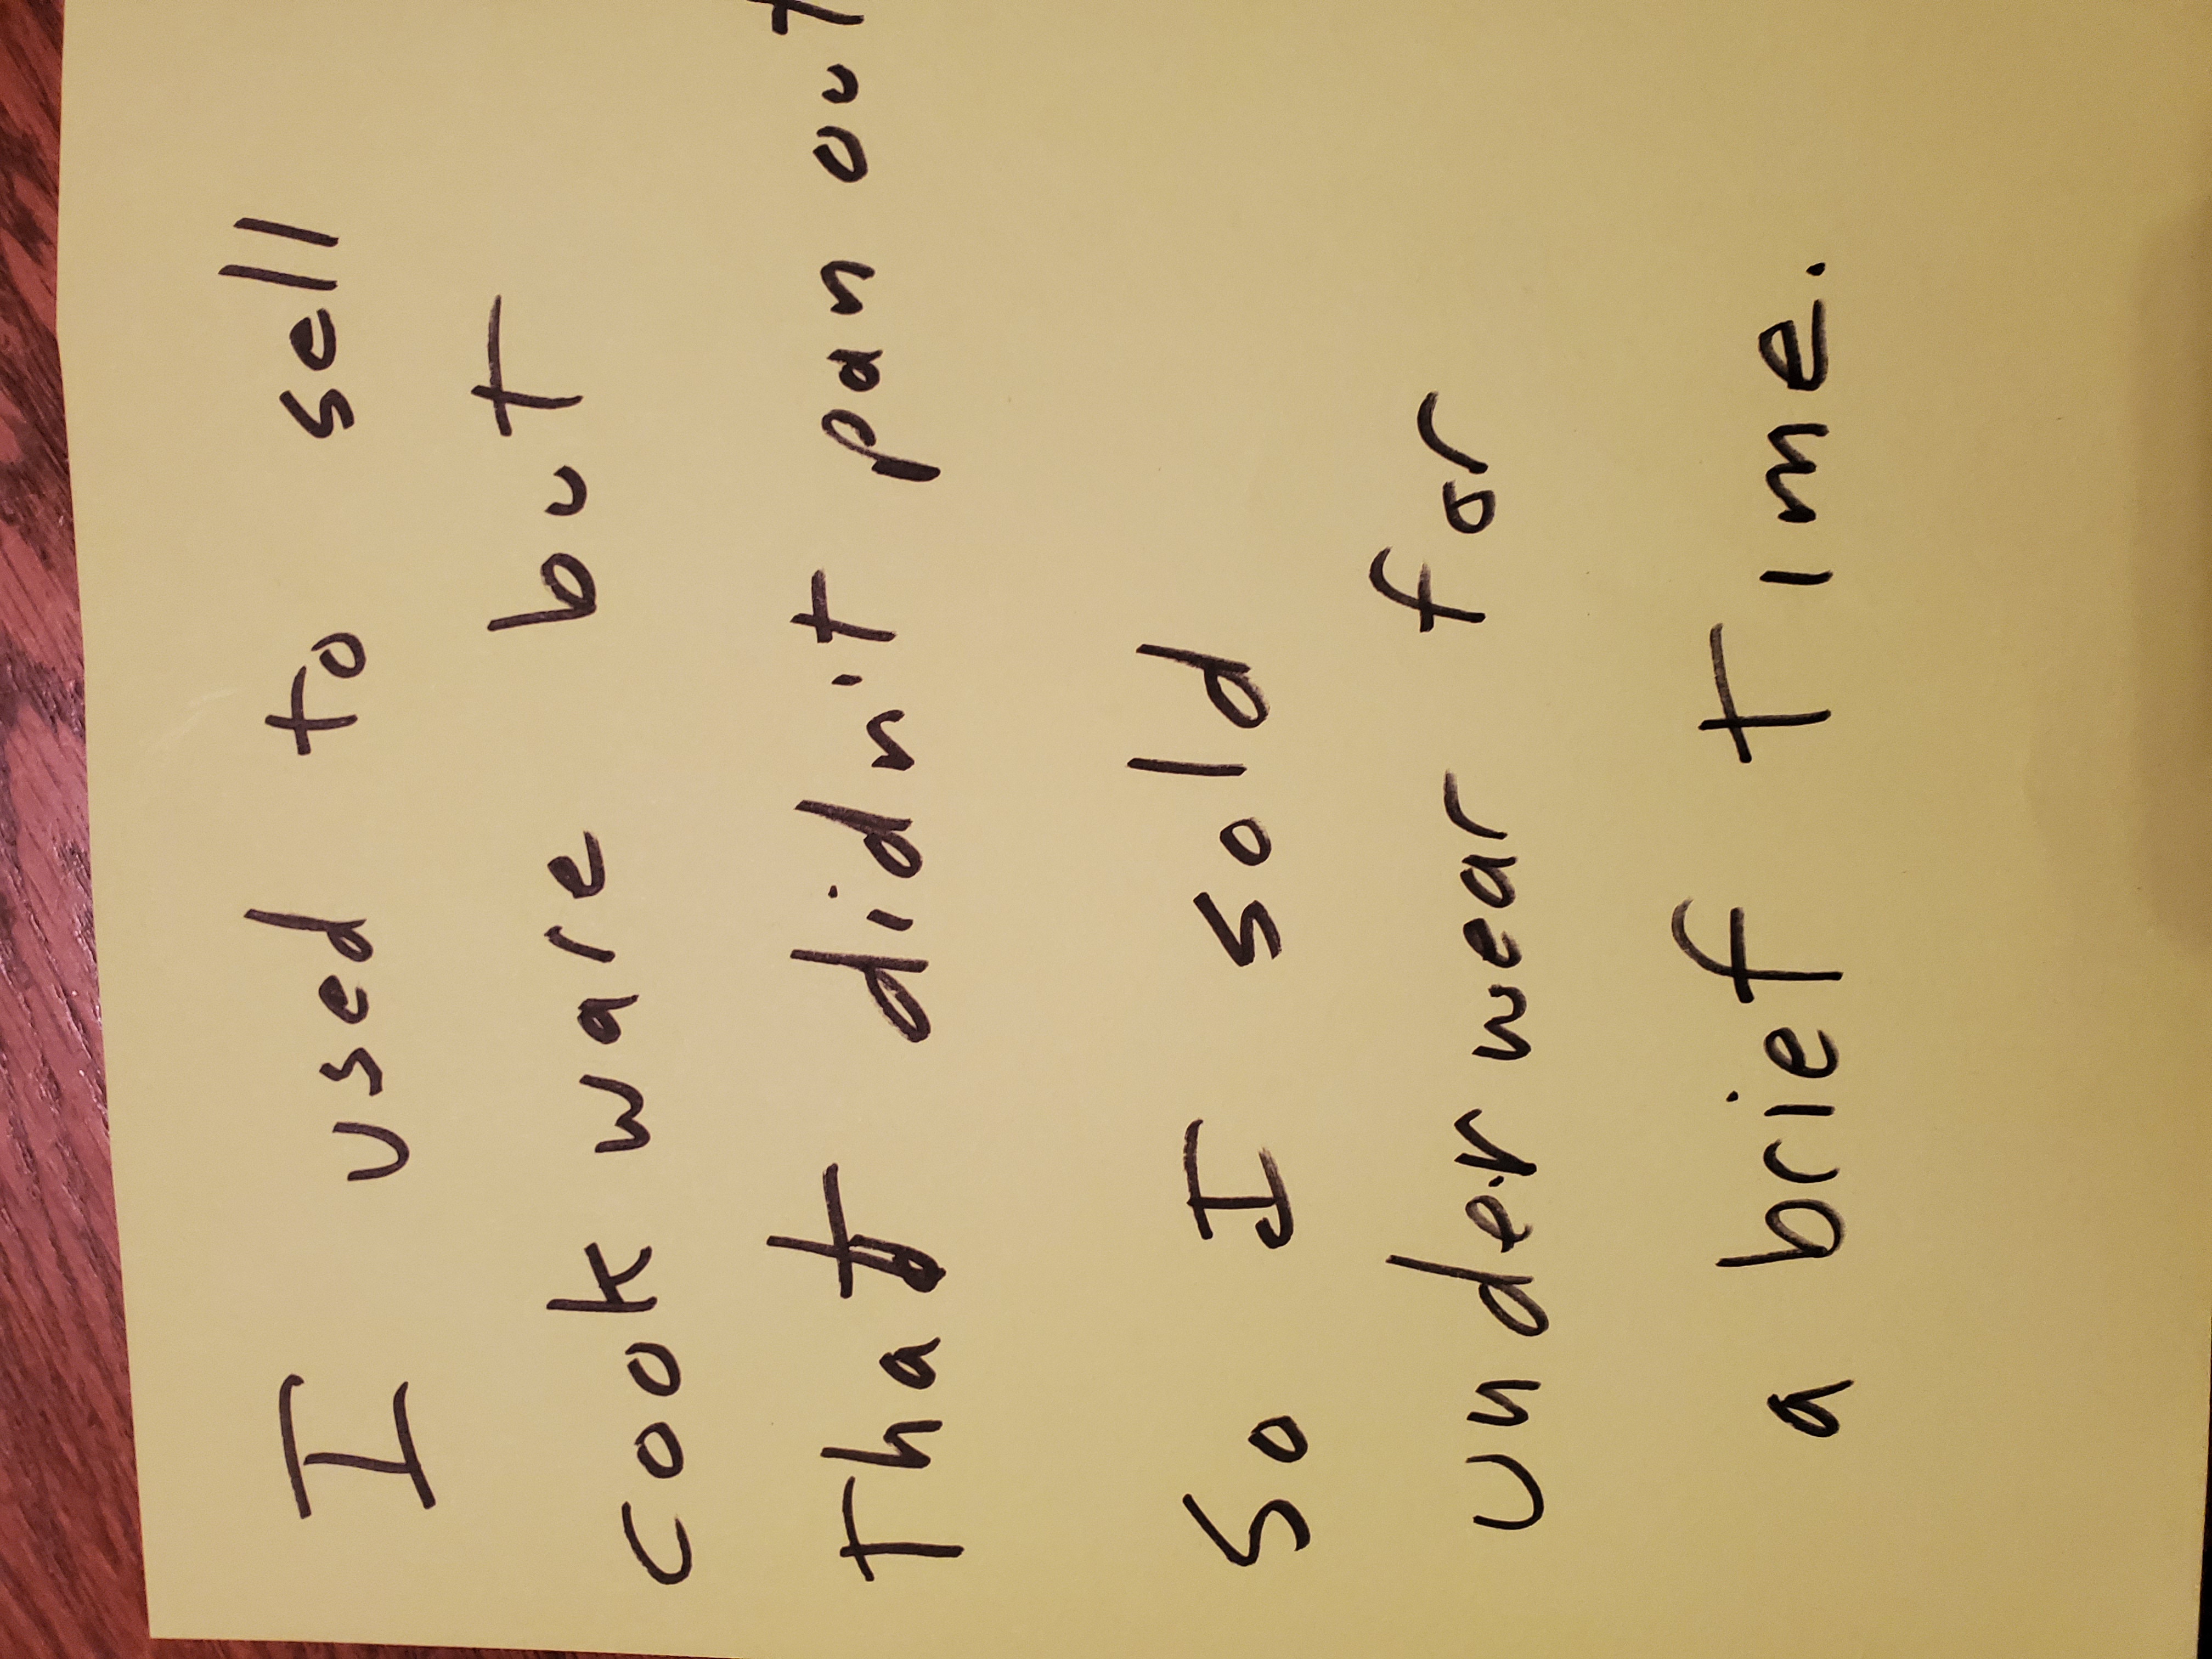 I used to sell
cook ware but
that didn't pan out
So I sold
underwear for
a brief time.